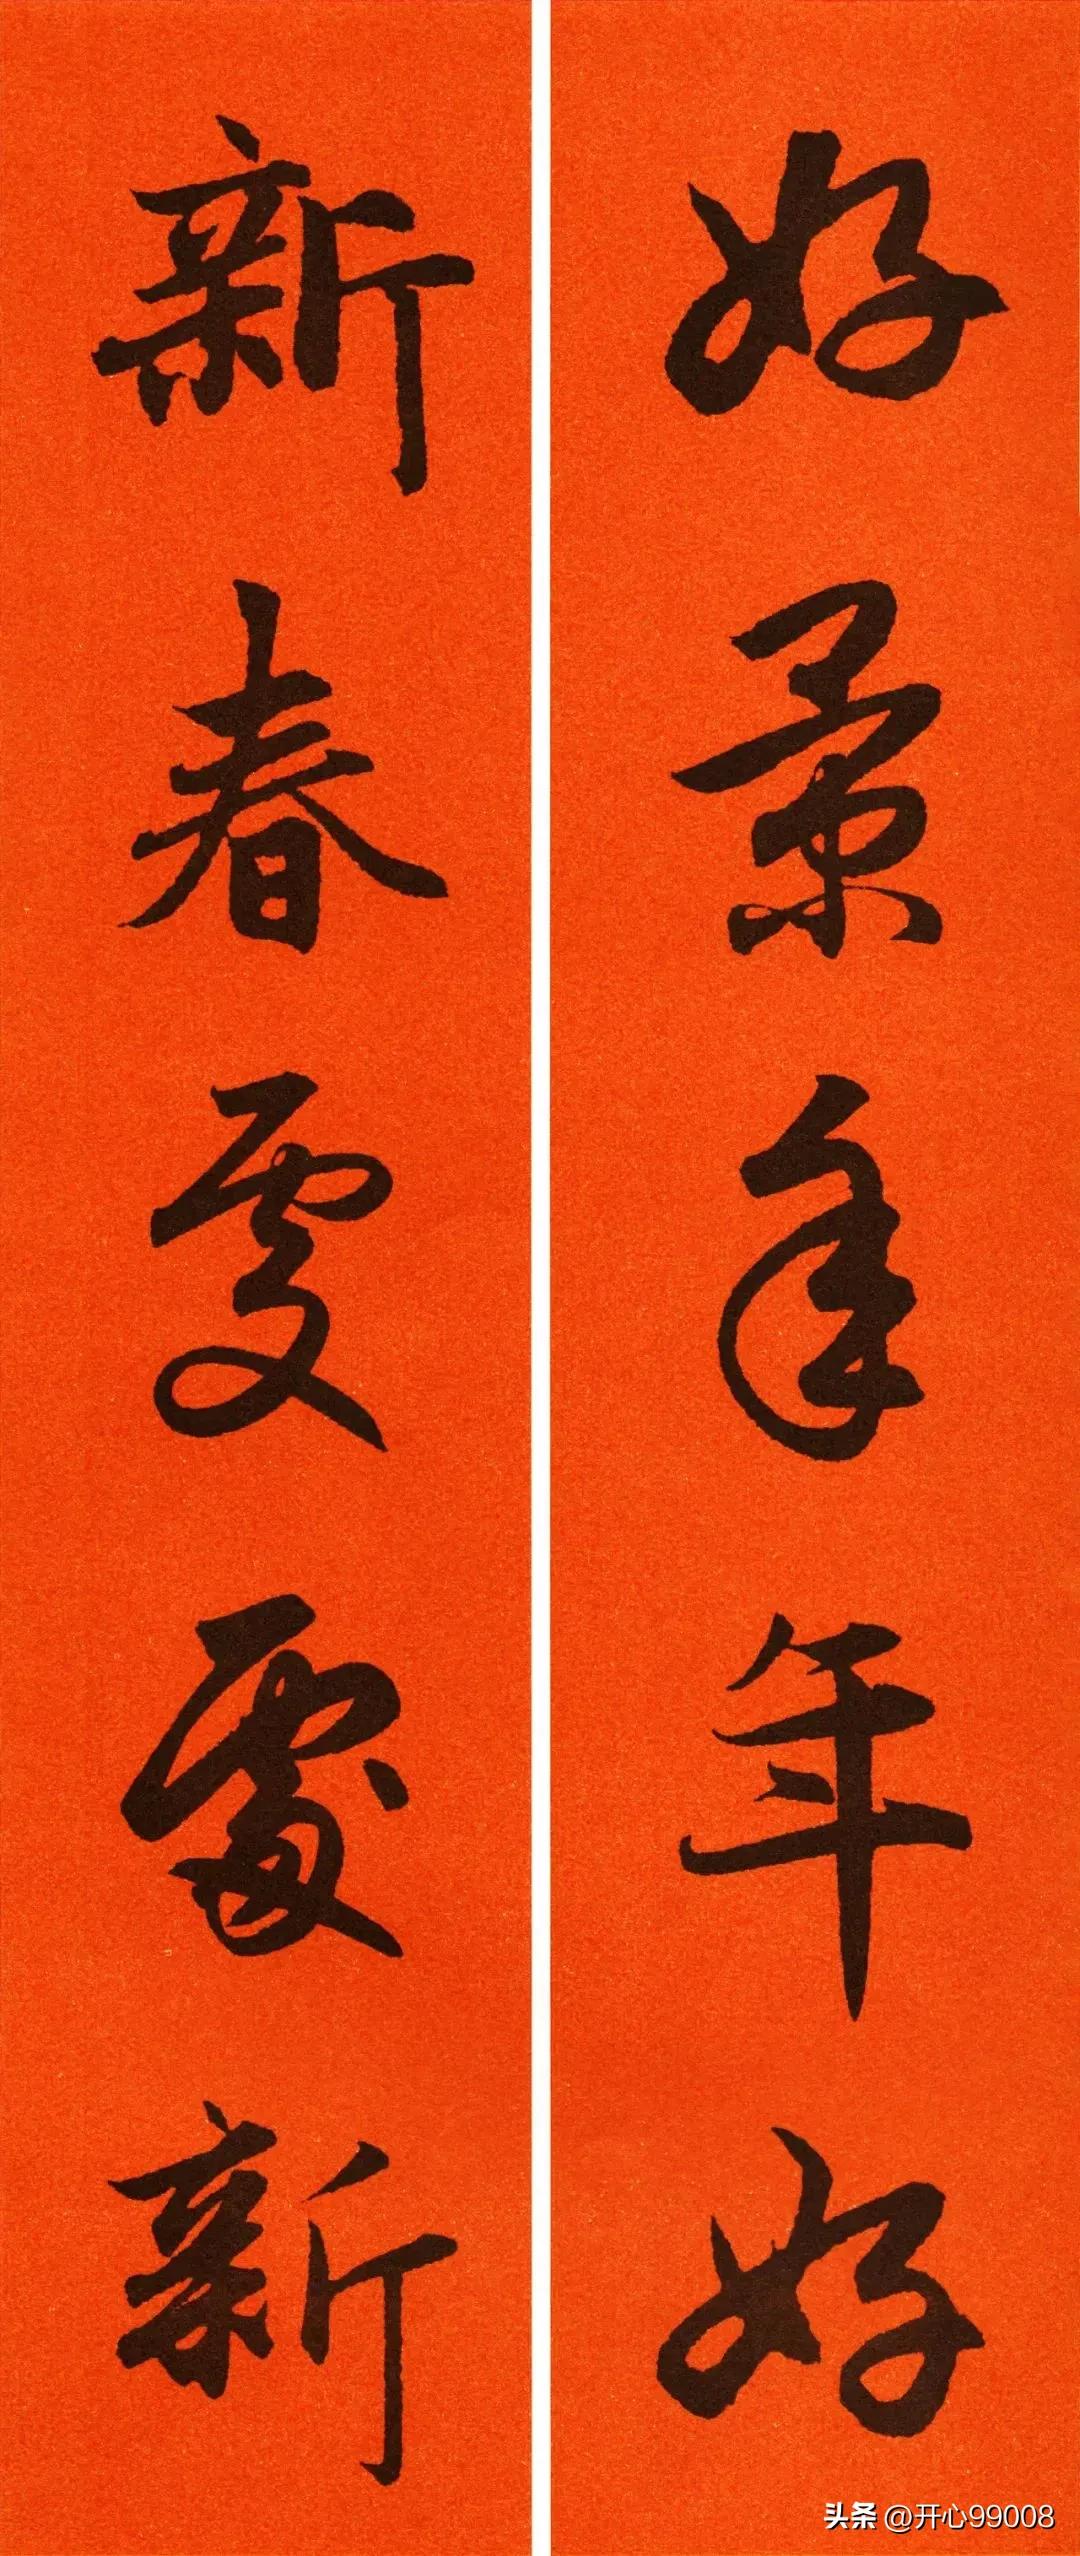 好景年年好
新春處處新
头条 @开心99008